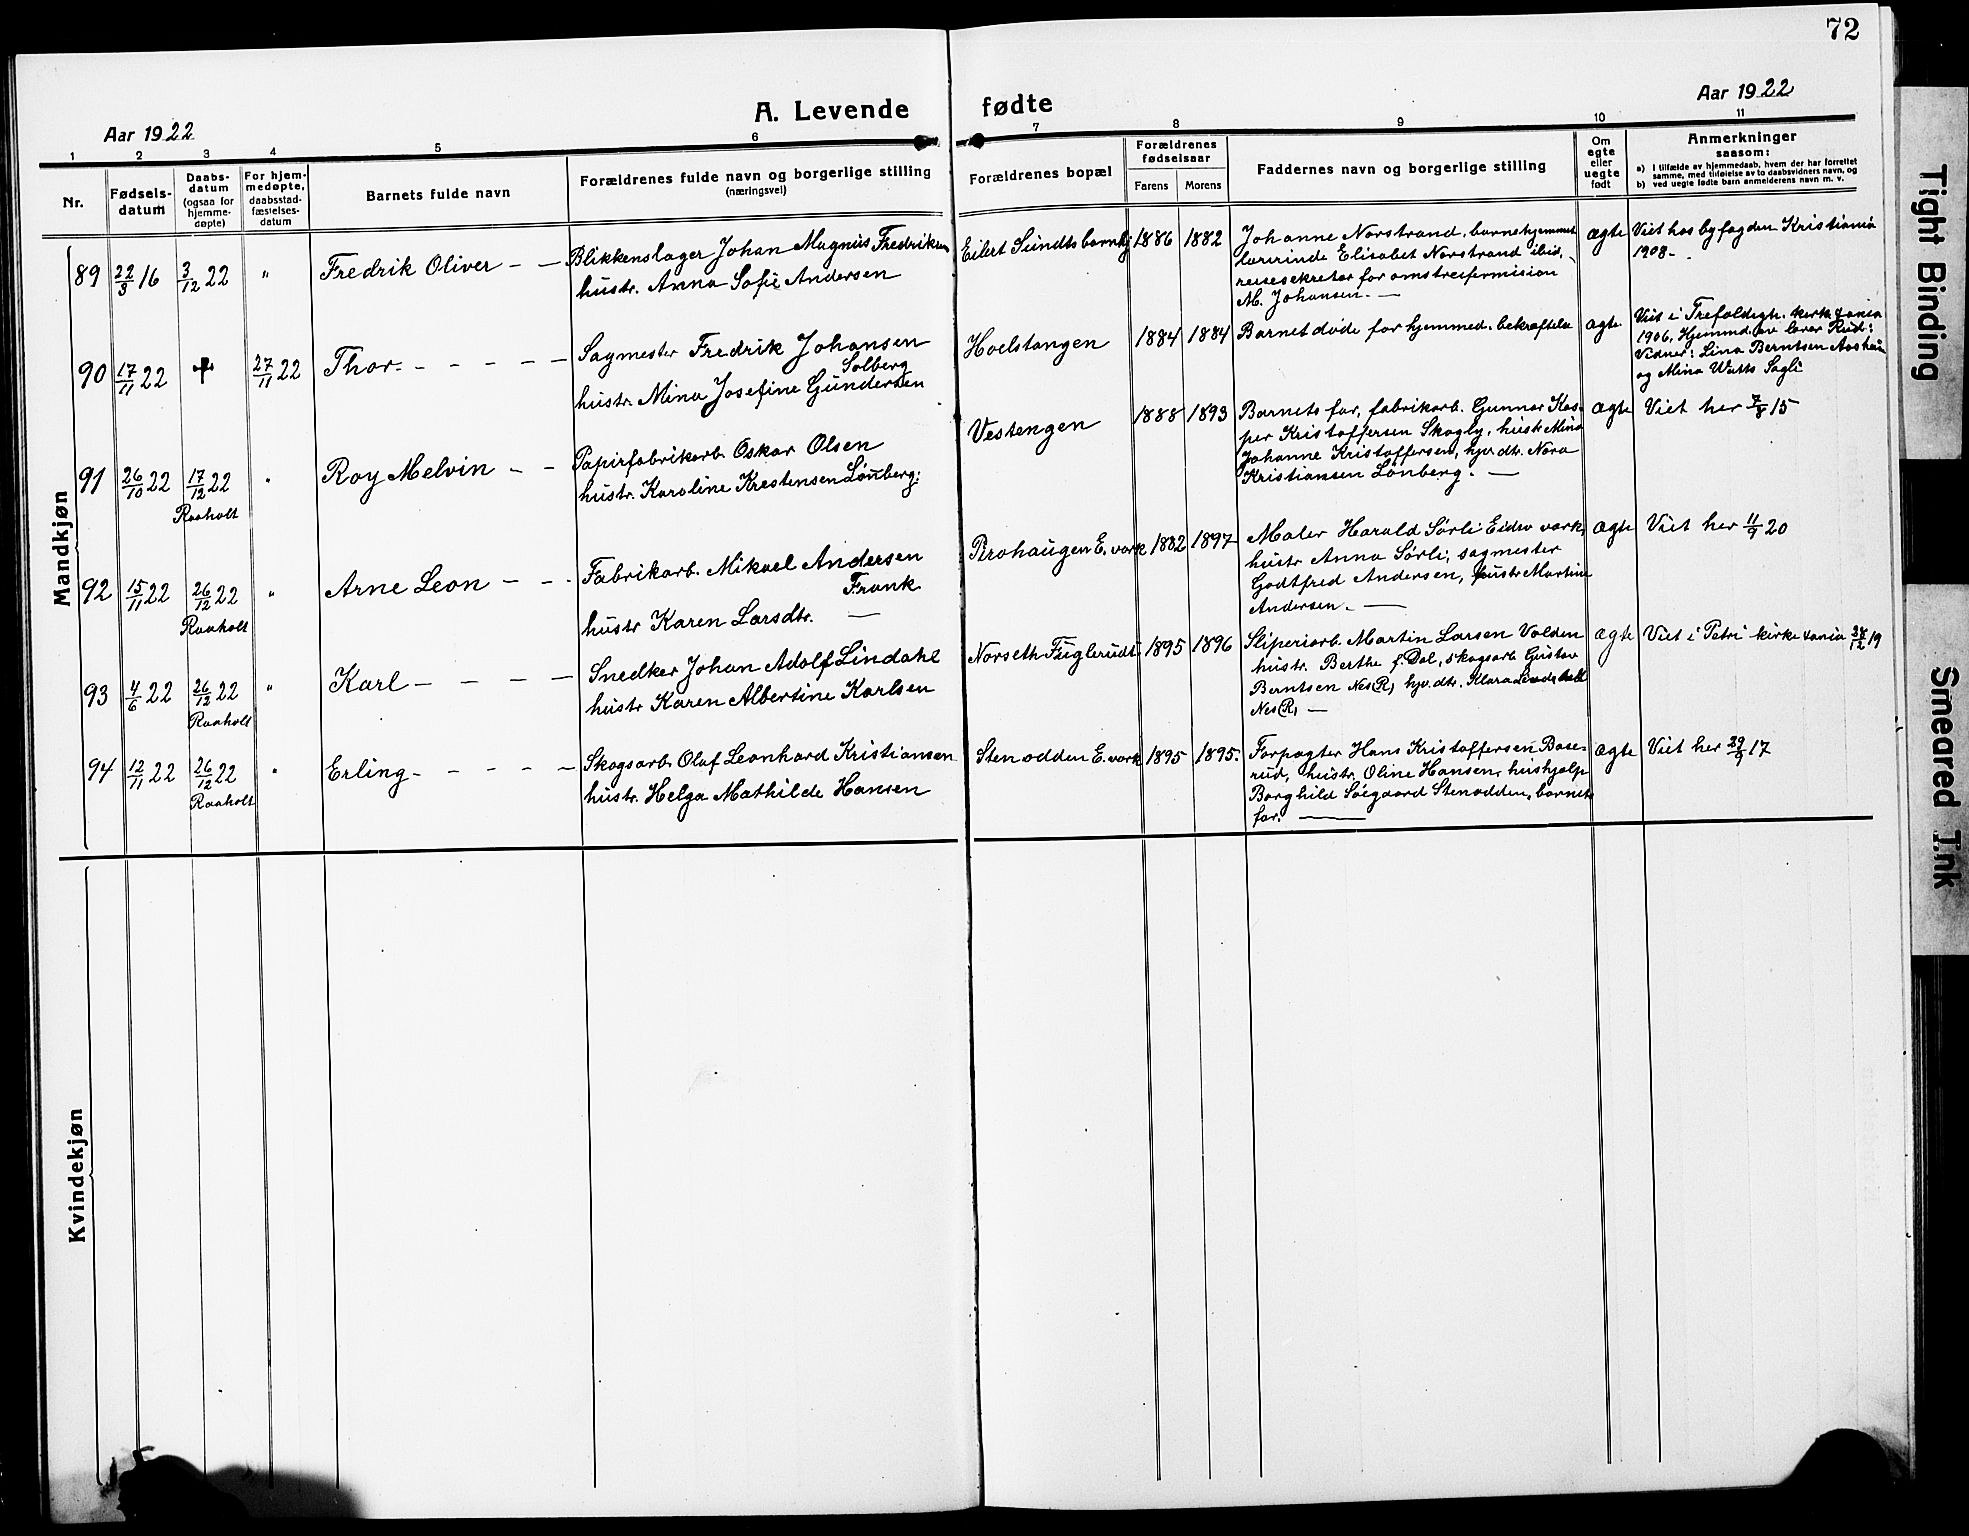 72
Aar 1922
A. Levende fødte
Aar 1922
1 2 3 4 5 6 7 8 9 10 11
Nr.
Fødsels-
datum
Daabs-
datum
(ogsaa for
hjemme-
døpte)
For hjem-
medøpte,
daabsstad-
fæstelses-
datum
Barnets fulde navn
Forældrenes fulde navn og borgerlige stilling
(næringsvei)
Forældrenes bopæl
Forældrenes
fødselsaar
Farens Morens
Faddernes navn og borgerlige stilling
Om
egte
eller
uegte
født
Anmerkninger
saasom:
a) I tilfælde av hjemmedaab, hvem der har forrettet
samme, med tilføielse av to daabsvidners navn, og
b) ved uegte fødte barn anmelderens navn m. v.
Mandkjøn
89 22/3 16 3/12 22 " Fredrik Oliver - -
Blikkenslager Johan Magnus Fredriksen
hustr. Anna Sofie Andersen
Eilert Sundts barnhj 1886 1882
Johanne Norstrand, barnehjemmet
lærerinde Elisabet Norstrand ibid,
reisesekretær for omstreifermision
M. Johansen. —
ægte
Viet hos byfogden Kristiania
1908 -
90 17/11 22 ✝ 27/11 22 Thor - - - - -
Sagmester Fredrik Johansen
Solberg
hustr. Mina Josefine Gundersen
Hoelstangen 1884 1884
Barnet døde før hjemmed. bekræftelse
ægte
Viet i Trefoldigh. kirke Xania
1906. Hjemmd. av lærer Rud:
Vidner: Lina Berntsen
og Mina Sagli
91 26/10 22 17/12 22 " Roy Melvin - -
Raaholt
Papirfabrikarb. Oskar Olsen
hustr. Karoline Krestensen Lønberg:
Vestengen 1888 1893
Barnets far, fabrikarb. Gunnar Kas-
per Kristoffersen Skogly, hustr Mina
Johanne Kristoffersen, hjv. dtr. Nora
Kristiansen Lønberg. —
ægte
Viet her 7/8 15
92 15/11 22 26/12 22 " Arne Leon - - -
Raaholt
Fabrikarb. Mikael Andersen
Frank
hustr Karen Larsdtr. —
haugen E. værk 1882 1897
Maler Harald Sørli Eidsv værk,
hustr Anna Sørli; sagmester
Godtfred Andersen, hustr Martine
Andersen. —
ægte
Viet her 11/9 20
93 4/6 22 26/12 22 " Karl - - - -
Raaholt
Snedker Johan Adolf Lindahl
hustr Karen Albertine Karlsen
Norseth Fuglerudt 1895 1896
Sliperiarb. Martin Larsen Volden
hustr. Berthe f. Dal, skogsarb Gustav
Berntsen Nes(R) hjv. dtr. Klara
Nes(R) —
ægte
Viet i Petri kirke Xania 12 19
94 12/11 22 26/12 22 " Erling - - - - -
Raaholt
Skogsarb. Olaf Leonhard Kristiansen
hustr. Helga Mathilde Hansen
Stenodden E. værk 1895 1895.
Forpagter Hans Kristoffersen Bøse-
rud, hustr. Oline Hansen, hushjælp
Borghild Søegaard Stenodden, barnets
far. —
ægte
Viet her 29/9 17
Kvindekjøn
Tight Binding
Smeared Ink